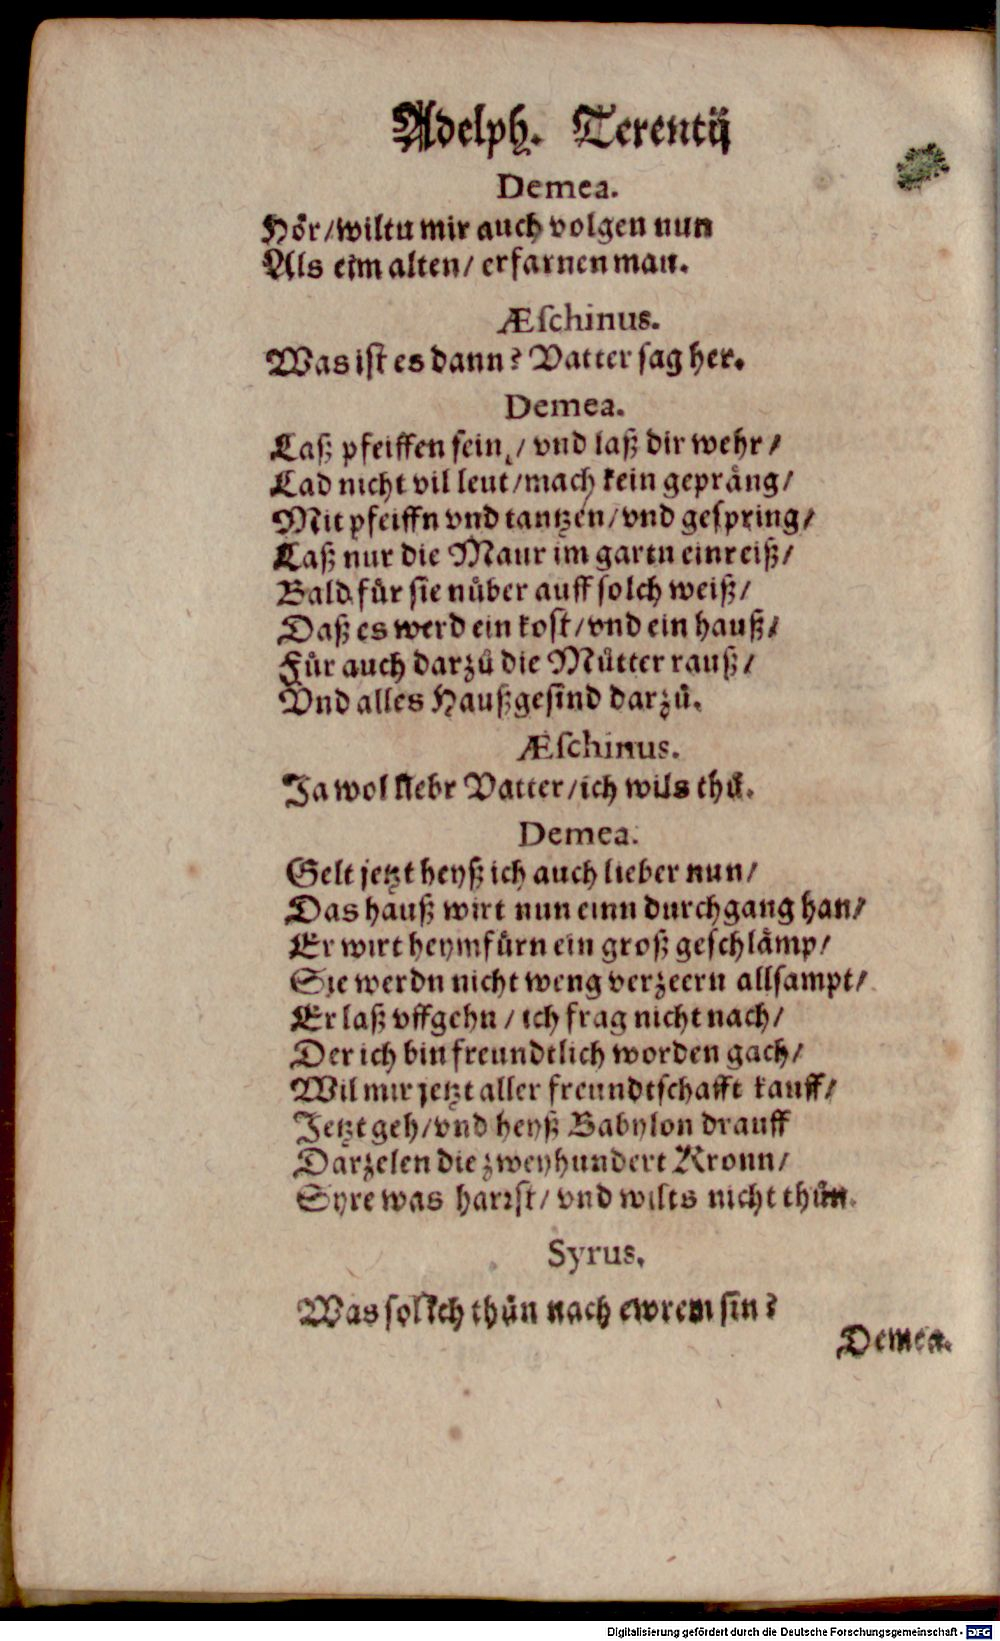 Adelph. Terentij
Demea.
Hoͤr/wiltu mir auch volgen nun
Als eim alten/ erfarnen man.
Æſchinus.
Was iſt es dann? Vatter ſag her.
Demea.
Laß pfeiffen ſein/ vnd laß dir wehr/
Lad nicht vil leut/mach kein gepraͤng/
Mit pfeiffn vnd tantzen/vnd geſpring/
Laß nur die Maur im gartn einreiß/
Bald fuͤr ſie nuͤber auff ſolch weiß/
Daß es werd ein koſt/vnd ein hauß/
Fuͤr auch darzuͦ die Muͦtter rauß/
Vnd alles Haußgeſind darzuͦ.
Æſchinus.
Ja wol liebr Vatter/ich wils thuͦ.
Demea.
Gelt jetzt heyß ich auch lieber nun/
Das hauß wirt nun einn durchgang han/
Er wirt heymfuͤrn ein groß geſchlaͤmp/
Sie werdn nicht weng verzeern allſampt/
Er laß vffgehn/ ich frag nicht nach/
Der ich bin freundtlich worden gach/
Wil mir jetzt aller freundtſchafft kauff/
Jetzt geh/vnd heyß Babylon drauff
Darzelen die zweyhundert Kronn/
Syre was harrſt/ vnd wilts nicht thuͦn.
Syrus.
Was ſol ich thuͦn nach ewrem ſin?
Demea.
Digitalisierung gefördert durch die Deutsche Forschungsgemeinschaft - DFG